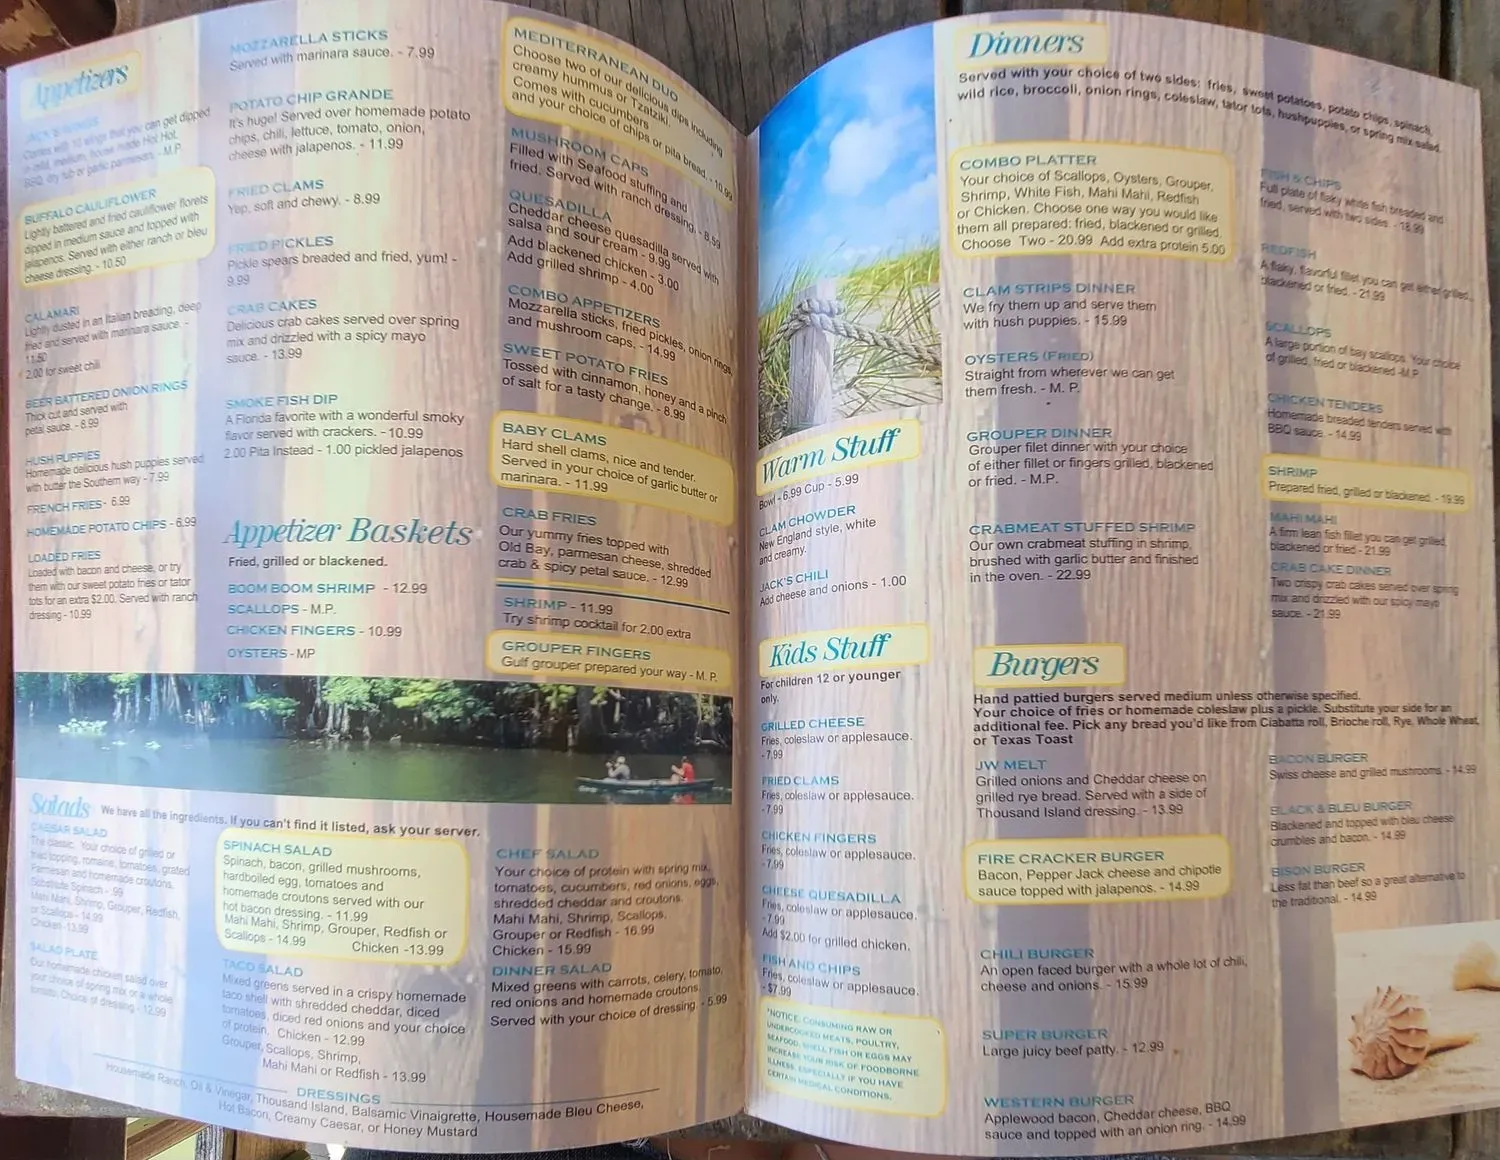 Appetizers
JACK'S WINGS
Comes with 10 wings that you can get dipped
in mild, medium, house made Hot Hot,
BBQ, dry rub or garlic parmesan. - M.P.
BUFFALO CAULIFLOWER
Lightly battered and fried cauliflower florets
dipped in medium sauce and topped with
jalapenos. Served with either ranch or bleu
cheese dressing. - 10.50
CALAMARI
Lightly dusted in an Italian breading, deep
fried and served with marinara sauce. -
11.50
2.00 for sweet chili
BEER BATTERED ONION RINGS
Thick cut and served with
petal sauce. - 8.99
HUSH PUPPIES
Homemade delicious hush puppies served
with butter the Southern way - 7.99
FRENCH FRIES - 6.99
HOMEMADE POTATO CHIPS - 6.99
LOADED FRIES
Loaded with bacon and cheese, or try
them with our sweet potato fries or tator
tots for an extra $2.00. Served with ranch
dressing - 10.99
MOZZARELLA STICKS
Served with marinara sauce. - 7.99
POTATO CHIP GRANDE
It's huge! Served over homemade potato
chips, chili, lettuce, tomato, onion,
cheese with jalapenos. - 11.99
FRIED CLAMS
Yep, soft and chewy. - 8.99
FRIED PICKLES
Pickle spears breaded and fried, yum! -
9.99
CRAB CAKES
Delicious crab cakes served over spring
mix and drizzled with a spicy mayo
sauce. - 13.99
SMOKE FISH DIP
A Florida favorite with a wonderful smoky
flavor served with crackers. - 10.99
2.00 Pita Instead - 1.00 pickled jalapenos
Appetizer Baskets
Fried, grilled or blackened.
BOOM BOOM SHRIMP - 12.99
SCALLOPS - M.P.
CHICKEN FINGERS - 10.99
OYSTERS - MP
MEDITERRANEAN DUO
Choose two of our delicious dips including
creamy hummus or Tzatziki.
Comes with cucumbers
and your choice of chips or pita bread. - 10.99
MUSHROOM CAPS
Filled with Seafood stuffing and
fried. Served with ranch dressing. - 8.99
QUESADILLA
Cheddar cheese quesadilla served with
salsa and sour cream - 9.99
Add blackened chicken - 3.00
Add grilled shrimp - 4.00
COMBO APPETIZERS
Mozzarella sticks, fried pickles, onion rings,
and mushroom caps. - 14.99
SWEET POTATO FRIES
Tossed with cinnamon, honey and a pinch
of salt for a tasty change. - 8.99
BABY CLAMS
Hard shell clams, nice and tender.
Served in your choice of garlic butter or
marinara. - 11.99
CRAB FRIES
Our yummy fries topped with
Old Bay, parmesan cheese, shredded
crab & spicy petal sauce. - 12.99
SHRIMP - 11.99
Try shrimp cocktail for 2.00 extra
GROUPER FINGERS
Gulf grouper prepared your way - M. P.
Salads We have all the ingredients. If you can't find it listed, ask your server.
CAESAR SALAD
The classic. Your choice of grilled or
fried topping, romaine, tomatoes, grated
Parmesan and homemade croutons.
Substitute Spinach - .99
Mahi Mahi, Shrimp, Grouper, Redfish,
or Scallops - 14.99
Chicken -13.99
SALAD PLATE
Our homemade chicken salad over
your choice of spring mix or a whole
tomato. Choice of dressing - 12.99
SPINACH SALAD
Spinach, bacon, grilled mushrooms,
hardboiled egg, tomatoes and
homemade croutons served with our
hot bacon dressing. - 11.99
Mahi Mahi, Shrimp, Grouper, Redfish or
Scallops - 14.99 Chicken -13.99
TACO SALAD
Mixed greens served in a crispy homemade
taco shell with shredded cheddar, diced
tomatoes, diced red onions and your choice
of protein. Chicken - 12.99
Grouper, Scallops, Shrimp,
Mahi Mahi or Redfish - 13.99
CHEF SALAD
Your choice of protein with spring mix,
tomatoes, cucumbers, red onions, eggs,
shredded cheddar and croutons.
Mahi Mahi, Shrimp, Scallops,
Grouper or Redfish - 16.99
Chicken - 15.99
DINNER SALAD
Mixed greens with carrots, celery, tomato,
red onions and homemade croutons.
Served with your choice of dressing. - 5.99
DRESSINGS
Housemade Ranch, Oil & Vinegar, Thousand Island, Balsamic Vinaigrette, Housemade Bleu Cheese,
Hot Bacon, Creamy Caesar, or Honey Mustard
Warm Stuff
Bowl - 6.99 Cup - 5.99
CLAM CHOWDER
New England style, white
and creamy.
JACK'S CHILI
Add cheese and onions - 1.00
Kids Stuff
For children 12 or younger
only.
GRILLED CHEESE
Fries, coleslaw or applesauce.
- 7.99
FRIED CLAMS
Fries, coleslaw or applesauce.
- 7.99
CHICKEN FINGERS
Fries, coleslaw or applesauce.
- 7.99
CHEESE QUESADILLA
Fries, coleslaw or applesauce.
- 7.99
Add $2.00 for grilled chicken.
FISH AND CHIPS
Fries, coleslaw or applesauce.
- $7.99
*NOTICE: CONSUMING RAW OR
UNDERCOOKED MEATS, POULTRY,
SEAFOOD, SHELL FISH OR EGGS MAY
INCREASE YOUR RISK OF FOODBORNE
ILLNESS, ESPECIALLY IF YOU HAVE
CERTAIN MEDICAL CONDITIONS.
Dinners
Served with your choice of two sides: fries, sweet potatoes, potato chips, spinach,
wild rice, broccoli, onion rings, coleslaw, tator tots, hushpuppies, or spring mix salad.
COMBO PLATTER
Your choice of Scallops, Oysters, Grouper,
Shrimp, White Fish, Mahi Mahi, Redfish
or Chicken. Choose one way you would like
them all prepared: fried, blackened or grilled.
Choose Two - 20.99 Add extra protein 5.00
CLAM STRIPS DINNER
We fry them up and serve them
with hush puppies. - 15.99
OYSTERS (FRIED)
Straight from wherever we can get
them fresh. - M. P.
GROUPER DINNER
Grouper filet dinner with your choice
of either fillet or fingers grilled, blackened
or fried. - M.P.
CRABMEAT STUFFED SHRIMP
Our own crabmeat stuffing in shrimp,
brushed with garlic butter and finished
in the oven. - 22.99
FISH & CHIPS
Full plate of flaky white fish breaded and
fried, served with two sides. - 18.99
REDFISH
A flaky, flavorful fillet you can get either grilled,
blackened or fried. - 21.99
SCALLOPS
A large portion of bay scallops. Your choice
of grilled, fried or blackened -M.P.
CHICKEN TENDERS
Homemade breaded tenders served with
BBQ sauce. - 14.99
SHRIMP
Prepared fried, grilled or blackened. - 19.99
MAHI MAHI
A firm lean fish fillet you can get grilled,
blackened or fried - 21.99
CRAB CAKE DINNER
Two crispy crab cakes served over spring
mix and drizzled with our spicy mayo
sauce. - 21.99
Burgers
Hand pattied burgers served medium unless otherwise specified.
Your choice of fries or homemade coleslaw plus a pickle. Substitute your side for an
additional fee. Pick any bread you'd like from Ciabatta roll, Brioche roll, Rye, Whole Wheat,
or Texas Toast
JW MELT
Grilled onions and Cheddar cheese on
grilled rye bread. Served with a side of
Thousand Island dressing. - 13.99
FIRE CRACKER BURGER
Bacon, Pepper Jack cheese and chipotle
sauce topped with jalapenos. - 14.99
CHILI BURGER
An open faced burger with a whole lot of chili,
cheese and onions. - 15.99
SUPER BURGER
Large juicy beef patty. - 12.99
WESTERN BURGER
Applewood bacon, Cheddar cheese, BBQ
sauce and topped with an onion ring. - 14.99
BACON BURGER
Swiss cheese and grilled mushrooms. - 14.99
BLACK & BLEU BURGER
Blackened and topped with bleu cheese
crumbles and bacon. - 14.99
BISON BURGER
Less fat than beef so a great alternative to
the traditional. - 14.99